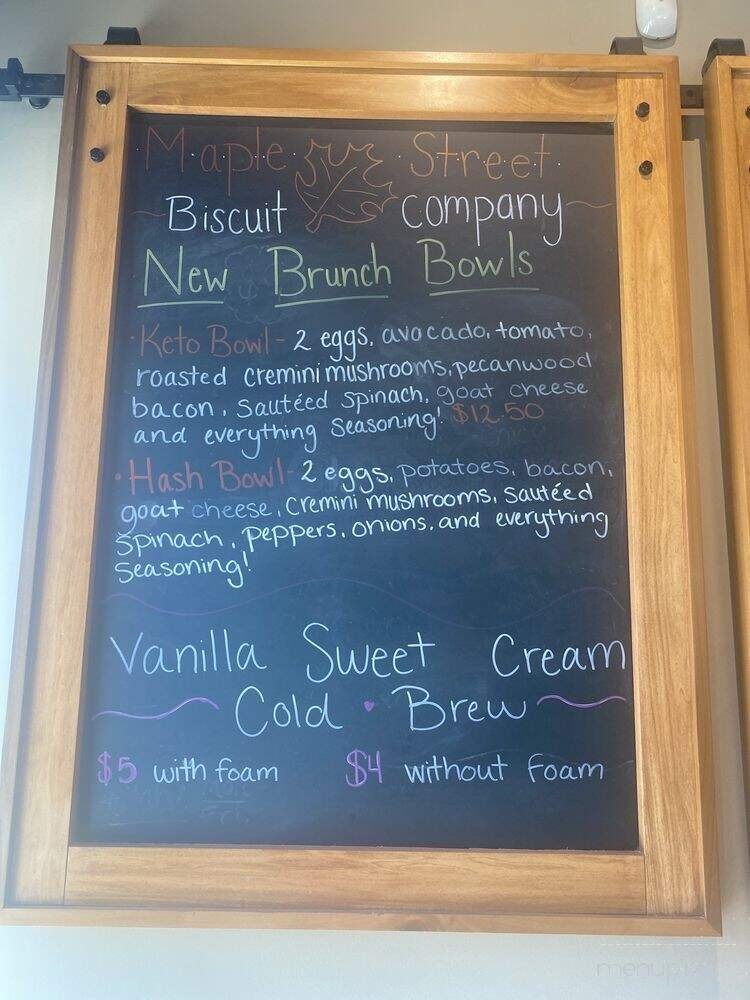 Maple Street
Biscuit Company
New Brunch Bowls
· Keto Bowl - 2 eggs, avocado, tomato,
roasted cremini mushrooms, pecanwood
bacon, sautéed spinach, goat cheese
and everything seasoning! $12.50
· Hash Bowl - 2 eggs, potatoes, bacon,
goat cheese, cremini mushrooms, sautéed
spinach, peppers, onions, and everything
seasoning!
Vanilla Sweet Cream
Cold Brew
$5 with foam $4 without foam